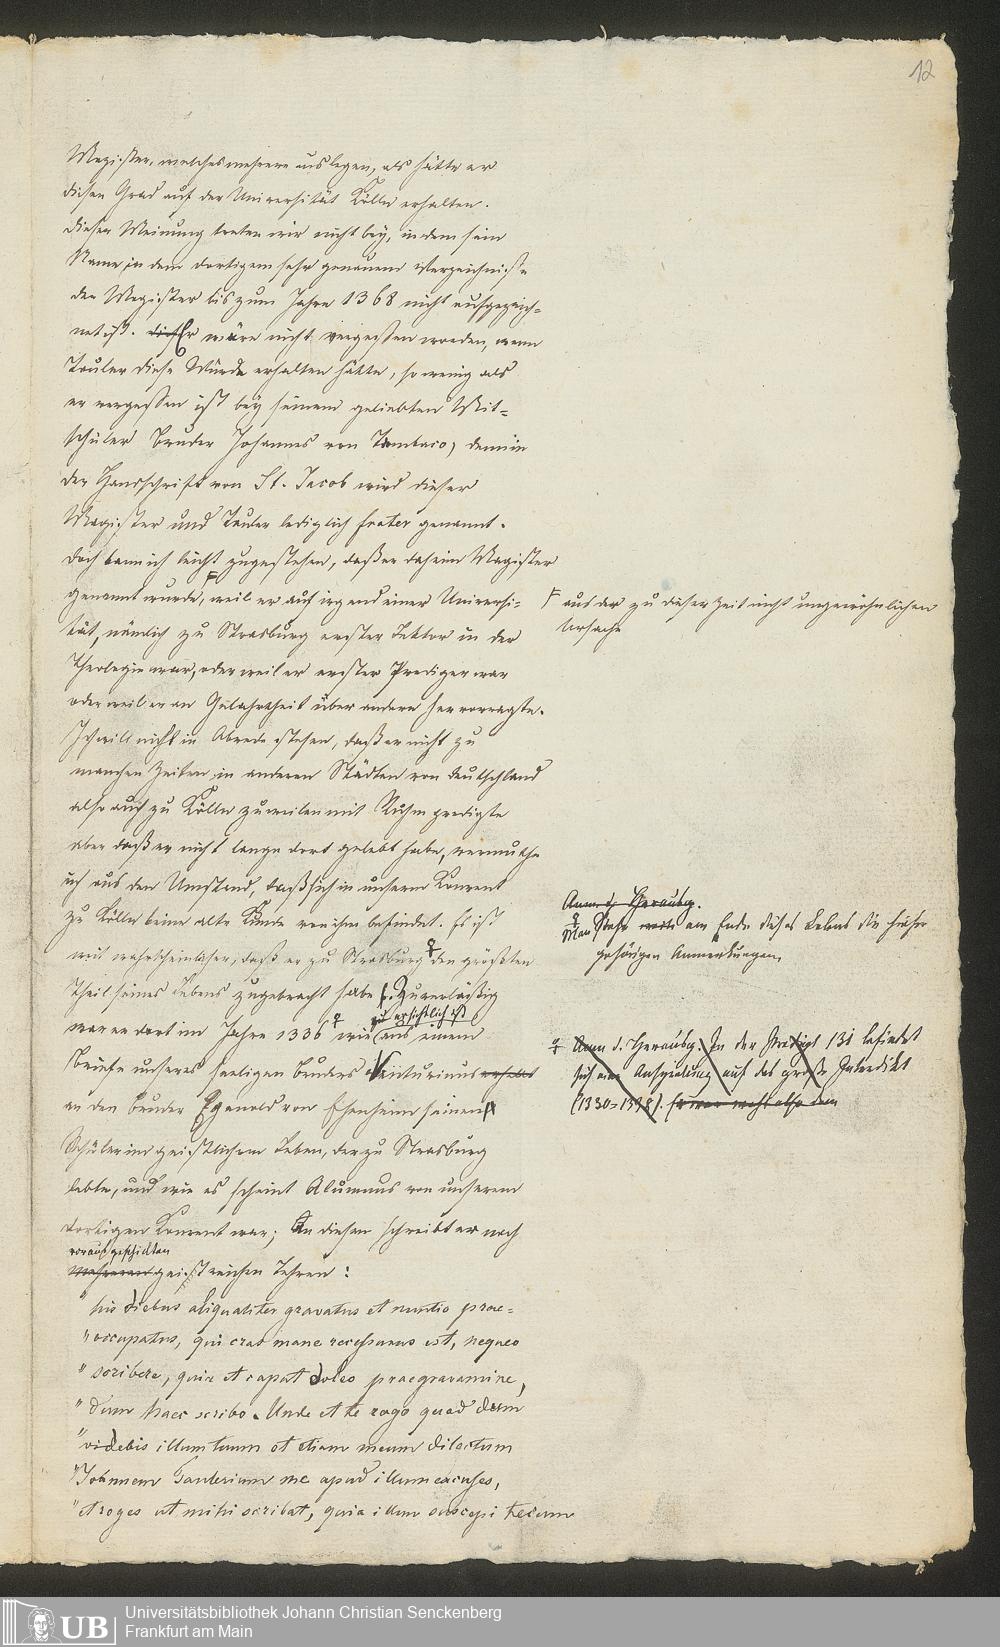 12
Magister, welches mehrere auslegen, als hätte er
diesen Grad auf der Universität Kölln erhalten.
Dieser Meinung treten wir nicht bey, indem sein
Name in dem dortigem sehr genauem Verzeichnisse
der Magister bis zum Jahre 1368 nicht aufgezeich=
net ist. Er wäre nicht vergessen worden, wenn
Tauler diese Würde erhalten hätte, so wenig als
er vergessen ist bey seinem geliebten Mit=
schüler Bruder Johannes von Tambaco, denn in
der Handschrift von St. Jacob wird dieser
Magister und Tauler lediglich frater genannt.
Doch kann ich leicht zugestehen, daß er daheim Magister
genannt wurde, weil er auf irgend einer Universi=
tät, nämlich zu Strasburg erster Lektor in der
Theologie war, oder weil er erster Prediger war
oder weil er an Gelahrtheit über andere hervorragte.
Ich will nicht in Abrede stehen, daß er nicht zu
manchen Zeiten in anderen Städten von Deutschland
also auch zu Kölln zuweilen mit Ruhm predigte
aber daß er nicht lange dort gelebt habe, vermuthe
ich aus dem Umstand, daß sich in unserm Konvent
zu Kölln keine alte Kunde von ihm befindet. Es ist
mir wahrscheinlicher, daß er zu Strasburg den größten
Theil seines Lebens zugebracht habe. Zuverläßig
zu ersichtlich ist
war er dort im Jahre 1336 wie aus einem
Briefe unseres seeligen Bruders Venturinus erhellet
an den Bruder Egenold von Ehenheim seinen
Schüler im geistlichem Leben, der zu Strasburg
lebte, und wie es scheint Alumnus von unserem
dortigen Konvent war; An diesen schreibt er nach
vorausgeschickten
mehreren geistreichen Lehren:
"his diebus aliqualiter gravatus et nuntio prae=
"occupatus, qui cras mane recessurus est, nequeo
"scribere, quia et caput doleo praegravamine,
"dum haec scribo. Unde et te rogo quod dum
"videbis illum tuum et etiam meum dilectum
"Johannem Taulerium me apud illum excuses,
"et roges ut mihi scribat, quia illum suscepi tecum
F aus der zu dieser Zeit nicht ungewöhnlichen
Ursache
Anm. d. Herausg.
Man sehe am Ende dieses Lebens die hieher
gehörigen Anmerkungen.
Anm. d. Herausg. In der Predigt 131 befindet
sich eine Anspielung auf das große Interdikt
(1330=1348). Er war nicht also dem
UB
Universitätsbibliothek Johann Christian Senckenberg
Frankfurt am Main